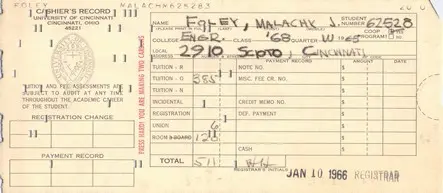 FOLEY MALACHY 625283
CASHIER'S RECORD
UNIVERSITY OF CINCINNATI
CINCINNATI, OHIO
45221
TUITION AND FEE ASSESSMENTS ARE
SUBJECT TO AUDIT AT ANY TIME
THROUGHOUT THE ACADEMIC CAREER
OF THE STUDENT.
REGISTRATION CHANGE
PAYMENT RECORD
PRESS HARD! YOU ARE MAKING TWO CARBONS
NAME FOLEY, MALACHY J. STUDENT NUMBER 62528
COLLEGE ENGR. CLASS '68 QUARTER W '65 COOP PROGRAM
LOCAL 2910 SCIOTO, CINCINNATI
PAYMENT RECORD
TUITION - R $ NOTE NO. $ AMOUNT
TUITION - C 385 MISC. FEE CR. NO.
TUITION - N
INCIDENTAL CREDIT MEMO NO.
REGISTRATION DEF. PAYMENT
UNION 6
ROOM & BOARD 120
CASH
TOTAL 511
REGISTRAR'S INITIALS
JAN 10 1966 REGISTRAR